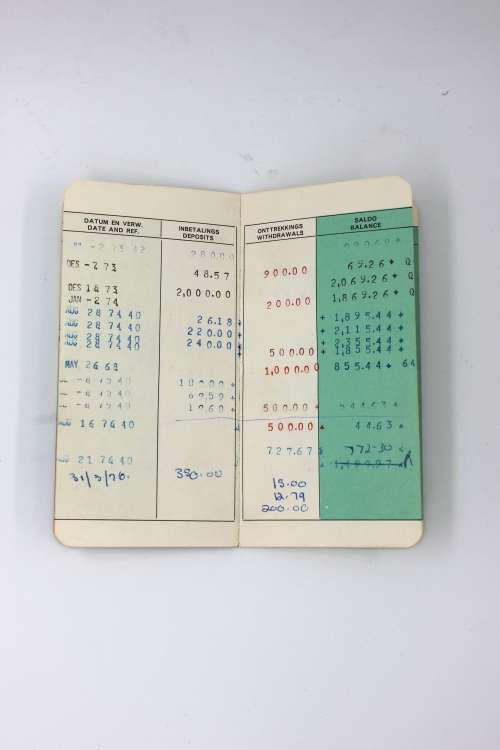 DATUM EN VERW. DATE AND REF. INBETALINGS DEPOSITS ONTTREKKINGS WITHDRAWALS SALDO BALANCE
280.00
DES -2 73 48.57 900.00 69.26+ Q
DES 18 73 2,000.00 2,069.26+ Q
JAN -2 74 200.00 1,869.26+ Q
AUG 28 74 40 26.18+ + 1,895.44+
AUG 28 74 40 220.00 + 2,115.44+
AUG 28 74 40 240.00 + 2,355.44+
AUG 28 74 40 500.00 + 1,855.44+
MAY 26 68 1,000.00 855.44+ 64
500.00+ 544.63
16 74 40 500.00 44.63
21 74 40 727.67 772-30
31/3/76. 350.00 15.00
12.79
200.00